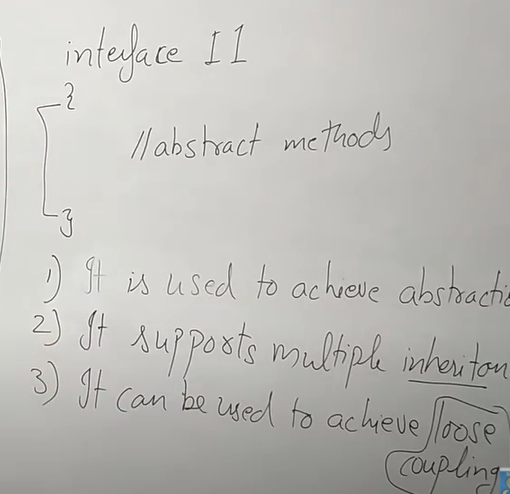 interface I1
{
//abstract methods
}
1) It is used to achieve abstracti
2) It supports multiple inheritan
3) It can be used to achieve loose
coupling